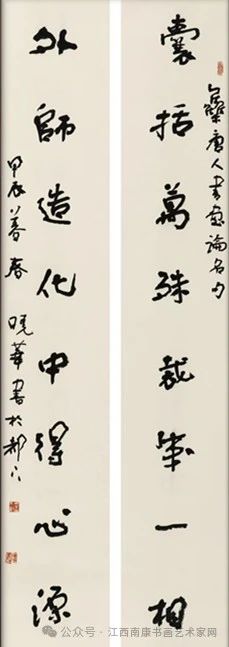 集唐人書畫論名句
囊括萬殊裁成一相
外師造化中得心源
甲辰暮春 曉華書於都下
公众号 · 江西南康书画艺术家网